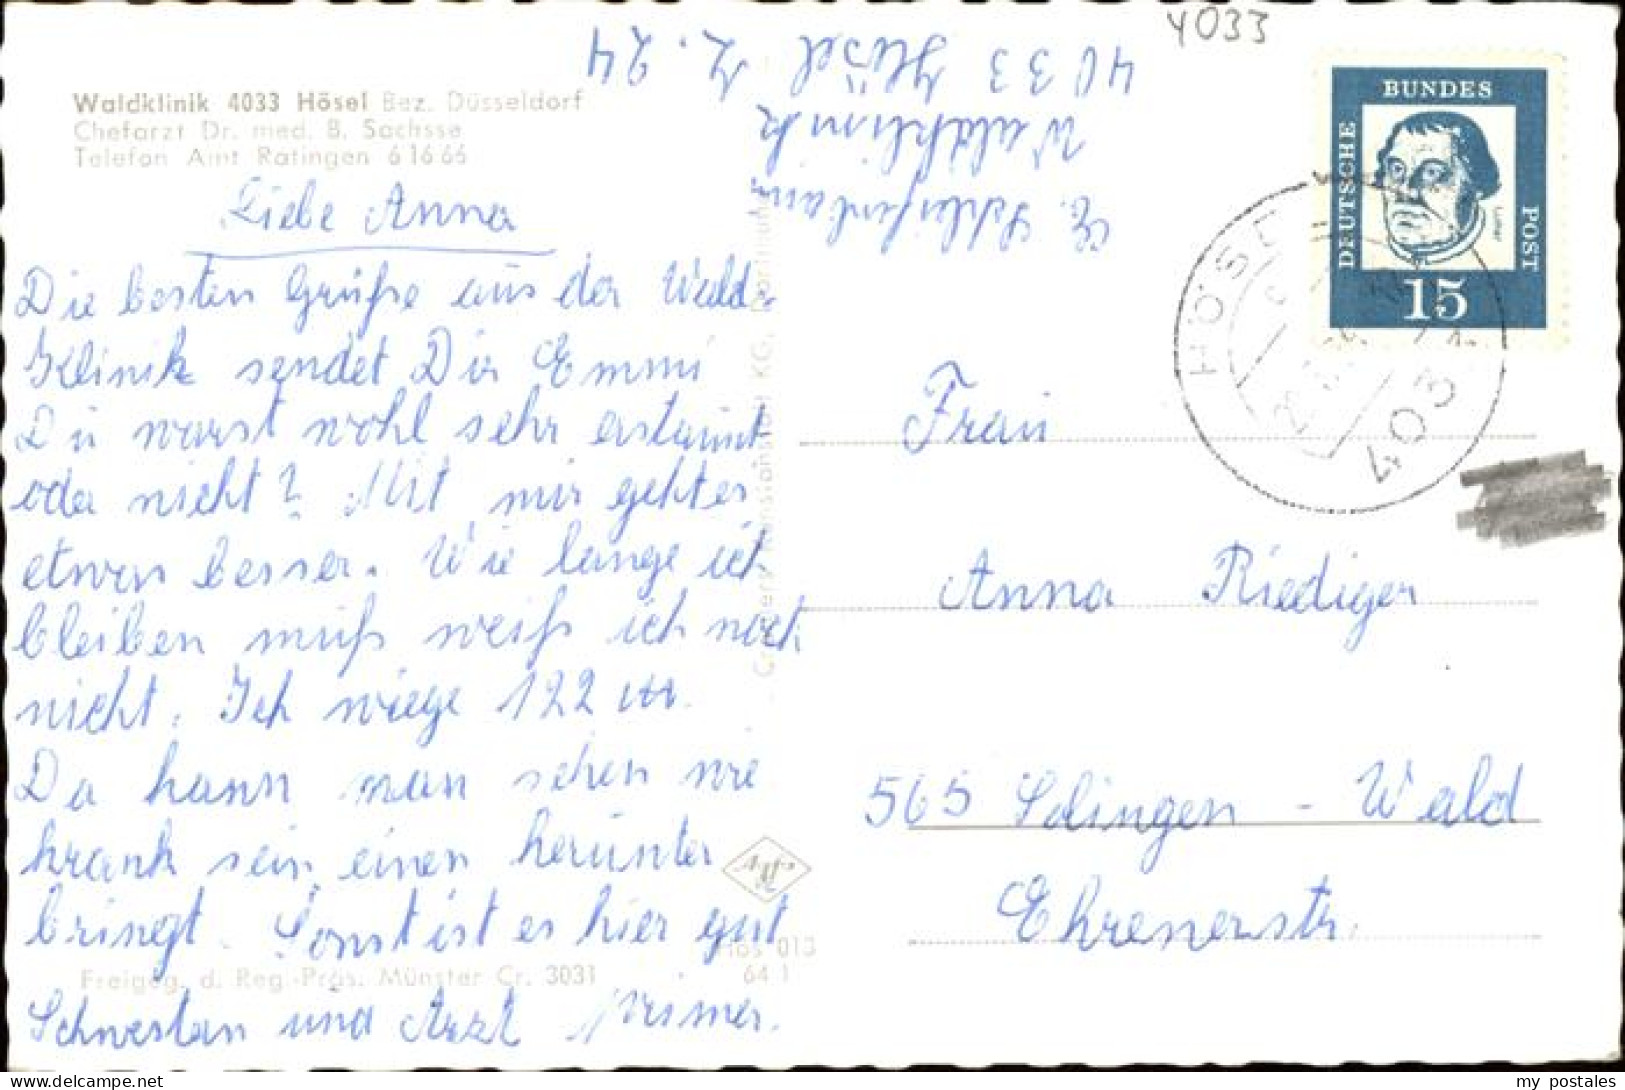 4033
Waldklinik 4033 Hösel Bez. Düsseldorf
Chefarzt Dr. med. B. Sachsse
Telefon Amt Ratingen 6 16 66
Waldklinik
4033 Hösel Z. 24
BUNDES
DEUTSCHE
POST
Luther
15
HÖSEL
4033
Liebe Anna
Die besten Grüße aus der Wald-
Klinik sendet Dir Emmi
Du warst wohl sehr erstaunt
oder nicht? Mit mir geht es
etwas besser. Wie lange ich
bleiben muß weiß ich noch
nicht. Ich wiege 122
Da kann man sehen wie
krank sein einen herunter
bringt. Sonst ist es hier gut
Schwestern und Arzt prima.
Frau
Anna Riediger
565 Solingen - Wald
Ehrenerstr.
Hös 013
64 1
Freigeg. d. Reg.-Präs. Münster Cr. 3031
my postales